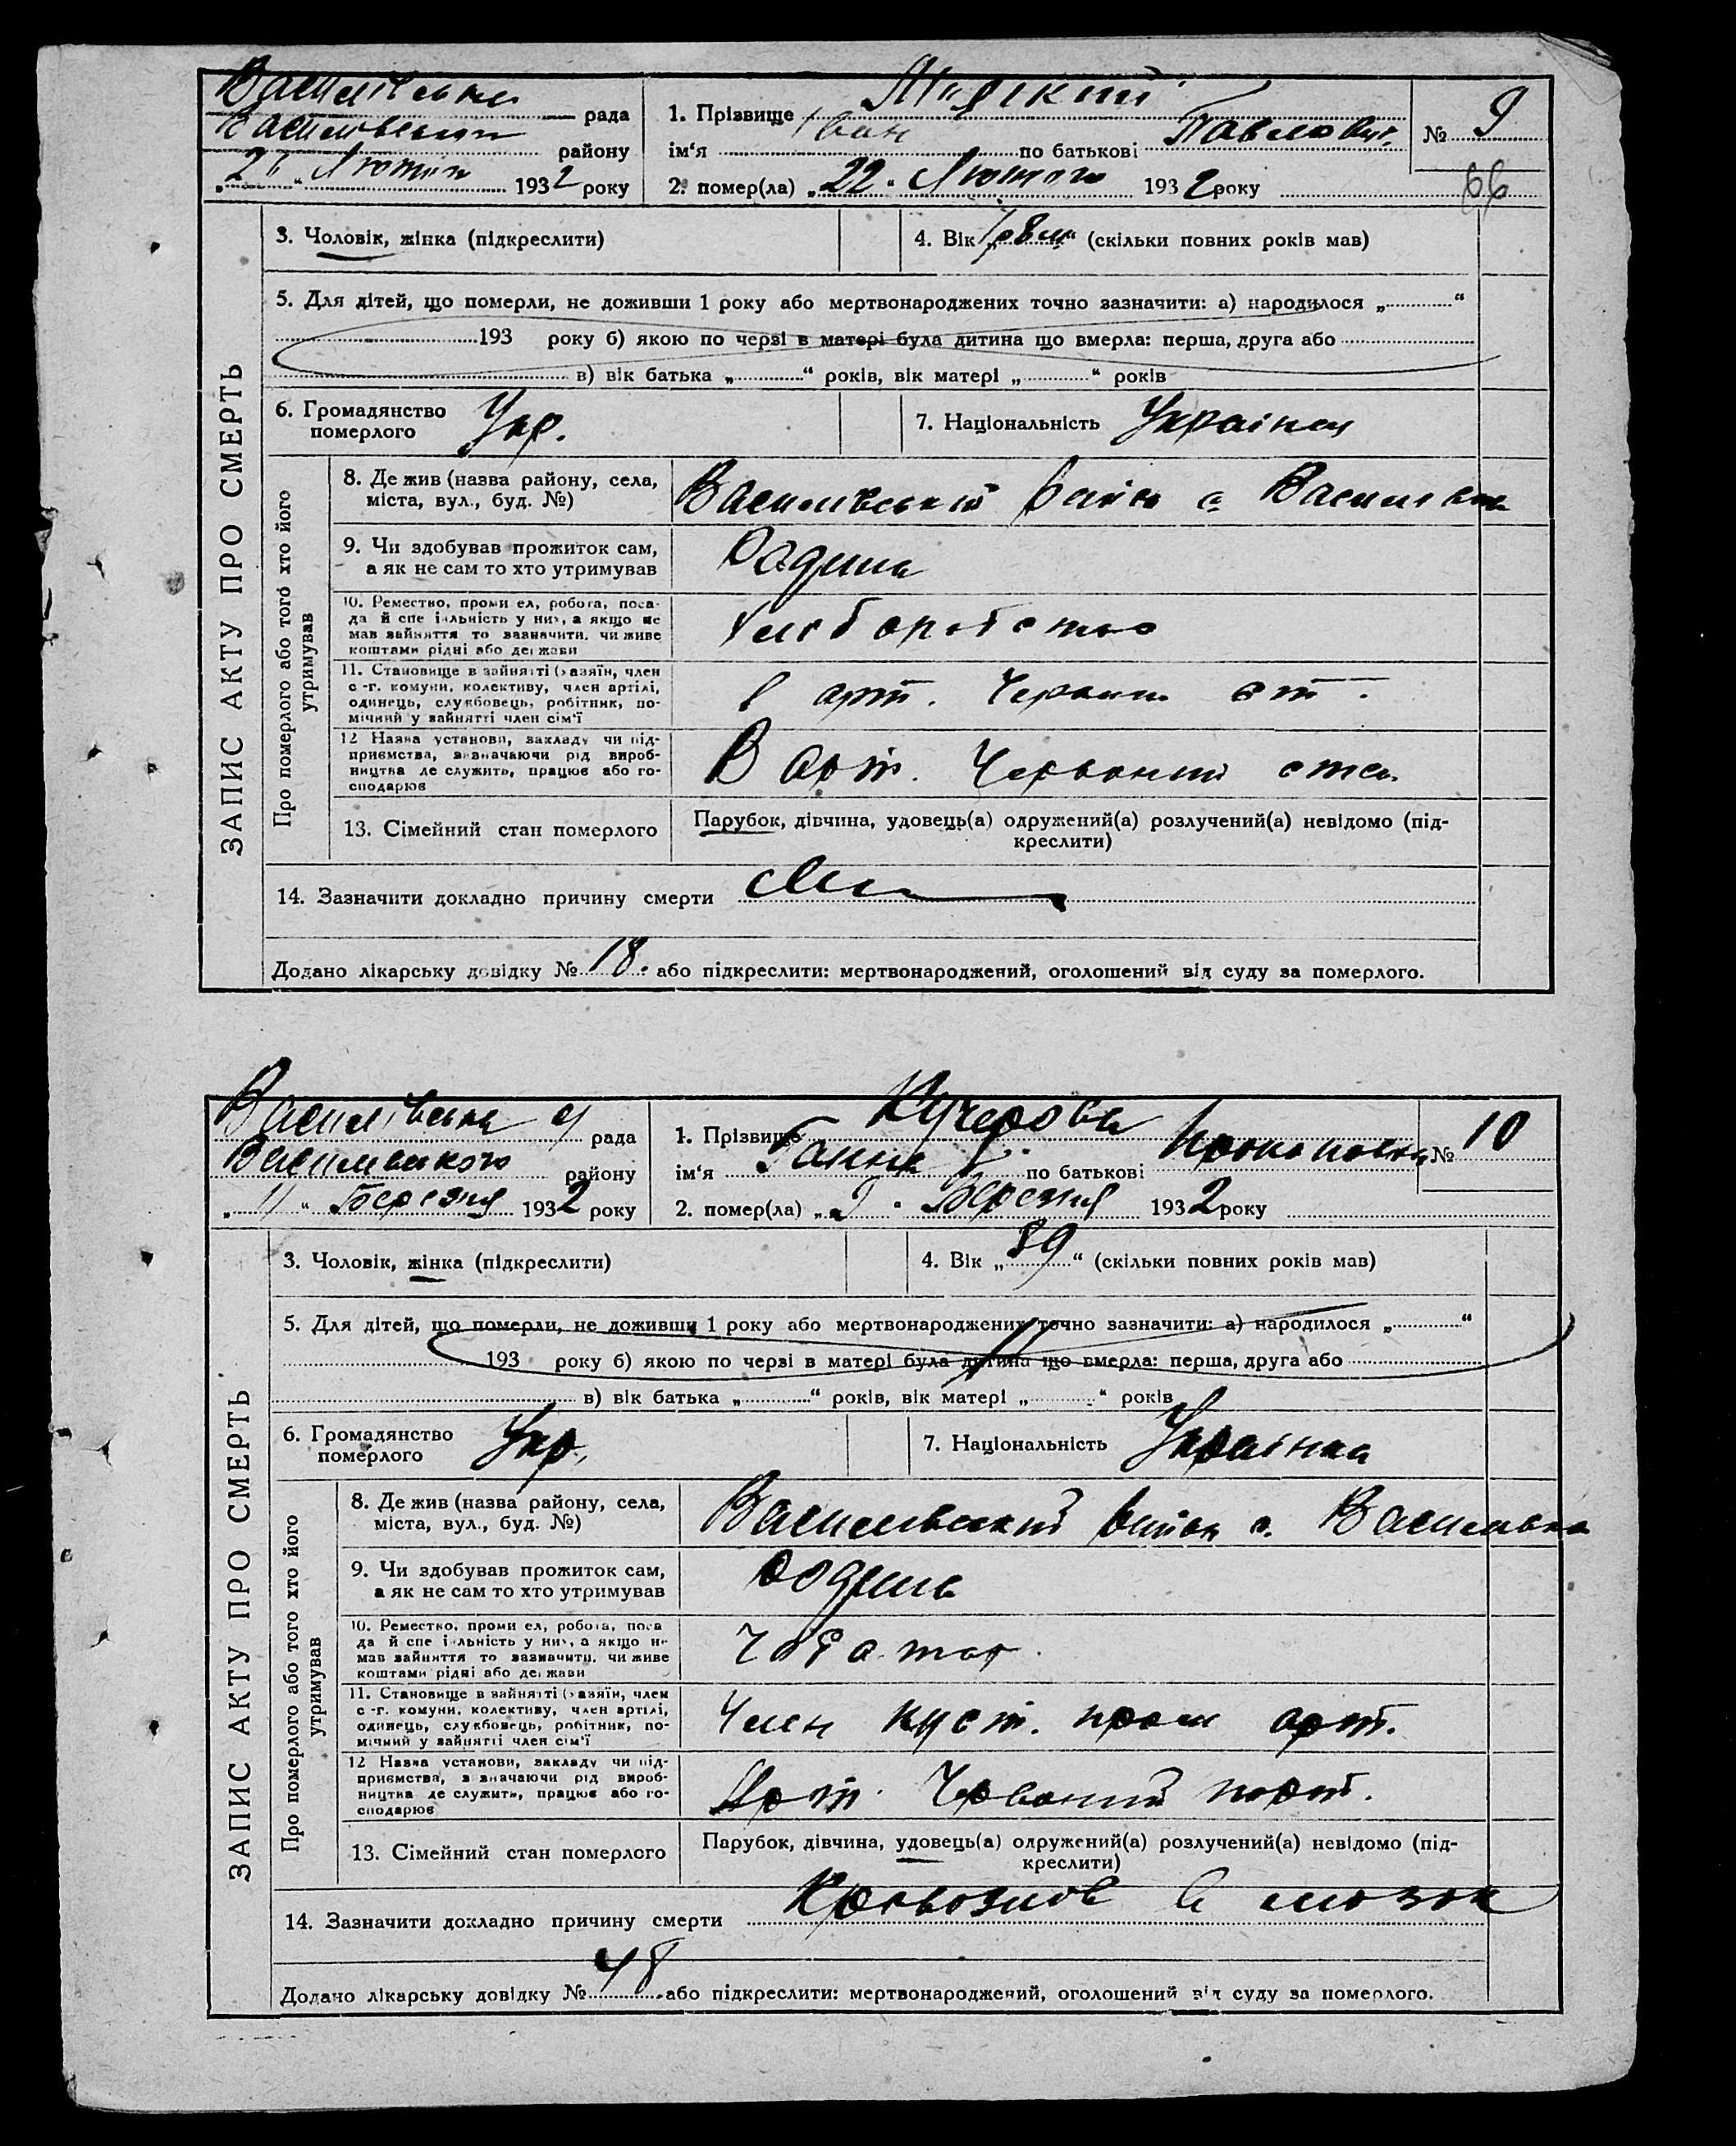 Василівська рада
Василівського району
"26" Лютого 1932 року
1. Прізвище
ім‘я Іван по батькові Павлович
2. помер(ла) „22" Лютого 1932 року
№ 9
66
ЗАПИС АКТУ ПРО СМЕРТЬ
3. Чоловік, жінка (підкреслити)
4. Вік „1 р 8 м“ (скільки повних років мав)
5. Для дітей, що померли, не доживши 1 року або мертвонароджених точно зазначити: а) народилося „ “
193 року б) якою по черзі в матері була дитина що вмерла: перша, друга або
в) вік батька „ “ років, вік матері „ “ років
6. Громадянство
померлого Укр.
7. Національність Українец
Про померлого або того хто його
утримував
8. Де жив (назва району, села,
міста, вул., буд. №)
Василівський район с. Василівка
9. Чи здобував прожиток сам,
а як не сам то хто утримував
Родина
10. Ремество, промисел, робота, поса-
да й спеціяльність у них, а якщо не
мав зайняття то зазначити, чи живе
коштами рідні або держави
Хліборобство
11. Становище в зайнятті (хазяїн, член
с.-г. комуни, колективу, член артілі,
одинець, службовець, робітник, по-
мічний у зайнятті член сім'ї
в арт. Червон. ст.
12 Назва установи, закладу чи під-
приємства, визначаючи рід вироб-
ництва де служить, працює або го-
сподарює
В арт. Червоний степ
13. Сімейний стан померлого
Парубок, дівчина, удовець(а) одружений(а) розлучений(а) невідомо (під-
креслити)
14. Зазначити докладно причину смерти
Додано лікарську довідку № 18. або підкреслити: мертвонароджений, оголошений від суду за померлого.
Василівська рада
Василівського району
„11“ Березня 1932 року
1. Прізвище Кучерова
ім‘я Ганна по батькові Прокоповна
2. помер(ла) „9" Березня 1932 року
№ 10
ЗАПИС АКТУ ПРО СМЕРТЬ
3. Чоловік, жінка (підкреслити)
4. Вік „59“ (скільки повних років мав)
5. Для дітей, що померли, не доживши 1 року або мертвонароджених точно зазначити: а) народилося „ “
193 року б) якою по черзі в матері була дитина що вмерла: перша, друга або
в) вік батька „ “ років, вік матері „ “ років
6. Громадянство
померлого Укр.
7. Національність Українка
Про померлого або того хто його
утримував
8. Де жив (назва району, села,
міста, вул., буд. №)
Василівський район с. Василівка
9. Чи здобував прожиток сам,
а як не сам то хто утримував
Родина
10. Ремество, промисел, робота, поса-
да й спеціяльність у них, а якщо не
мав зайняття то зазначити, чи живе
коштами рідні або держави
Чоботар
11. Становище в зайнятті (хазяїн, член
с.-г. комуни, колективу, член артілі,
одинець, службовець, робітник, по-
мічний у зайнятті член сім'ї
Член куст. пром арт.
12 Назва установи, закладу чи під-
приємства, визначаючи рід вироб-
ництва де служить, працює або го-
сподарює
Арт. Червоний
13. Сімейний стан померлого
Парубок, дівчина, удовець(а) одружений(а) розлучений(а) невідомо (під-
креслити)
14. Зазначити докладно причину смерти в мозок
Додано лікарську довідку № 48 або підкреслити: мертвонароджений, оголошений від суду за померлого.